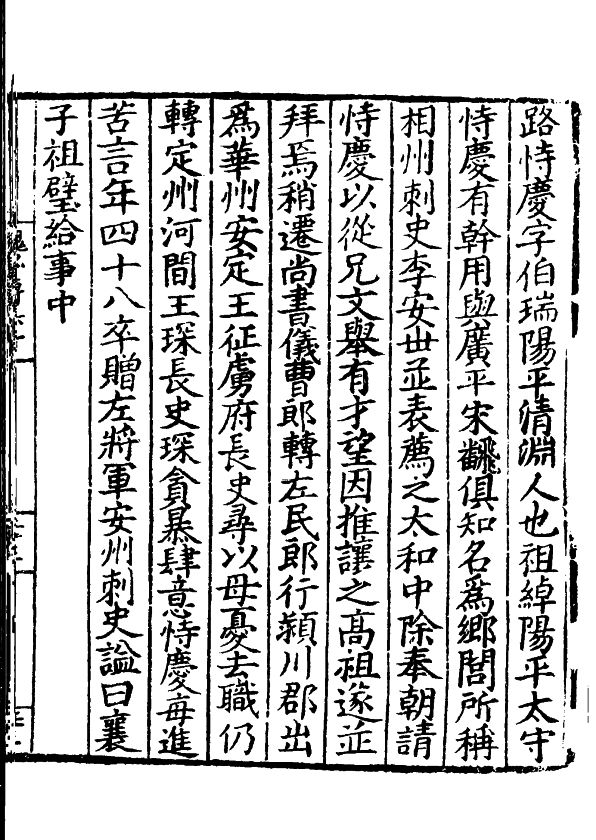 路恃慶字伯瑞陽平清淵人也祖綽陽平太守
恃慶有幹用與廣平宋飜俱知名爲鄉閭所稱
相州刺史李安世並表薦之太和中除奉朝請
恃慶以從兄文舉有才望因推讓之高祖遂並
拜焉稍遷尚書儀曹郎轉左民郎行潁川郡出
爲華州安定王征虜府長史尋以母憂去職仍
轉定州河間王琛長史琛貪暴肆意恃慶每進
苦言年四十八卒贈左將軍安州刺史諡曰襄
子祖璧給事中